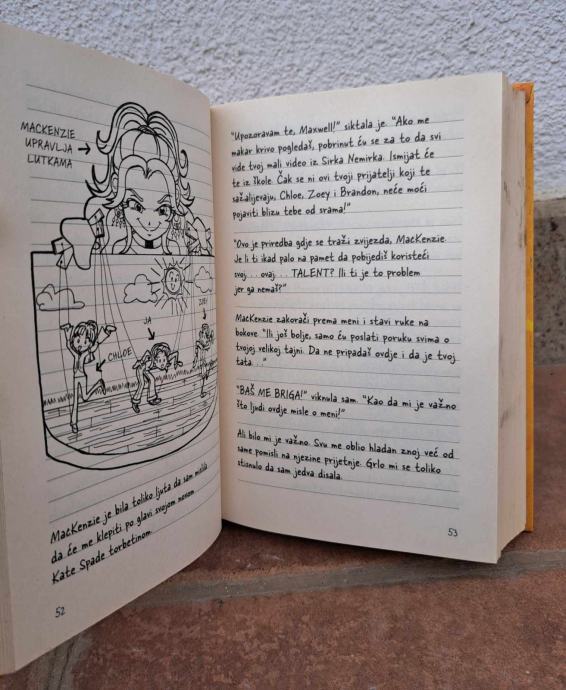 MACKENZIE
UPRAVLJA
LUTKAMA
ZOEY
JA
CHLOE
MacKenzie je bila toliko ljuta da sam mislila
da će me klepiti po glavi svojom novom
Kate Spade torbetinom.
52
"Upozoravam te, Maxwell!" siktala je. "Ako me
makar krivo pogledaš, pobrinut ću se za to da svi
vide tvoj mali video iz Sirka Nemirka. Ismijat će
te iz škole. Čak se ni ovi tvoji prijatelji koji te
sažaljevaju, Chloe, Zoey i Brandon, neće moći
pojaviti blizu tebe od srama!"
"Ovo je priredba gdje se traži zvijezda, MacKenzie.
Je li ti ikad palo na pamet da pobijediš koristeći
svoj. . . ovaj. . . TALENT? Ili ti je to problem
jer ga nemaš?"
MacKenzie zakorači prema meni i stavi ruke na
bokove. "Ili još bolje, samo ću poslati poruku svima o
tvojoj velikoj tajni. Da ne pripadaš ovdje i da je tvoj
tata. . ."
"BAŠ ME BRIGA!" viknula sam. "Kao da mi je važno
što ljudi ovdje misle o meni!"
Ali bilo mi je važno. Svu me oblio hladan znoj već od
same pomisli na njezine prijetnje. Grlo mi se toliko
stisnulo da sam jedva disala.
53